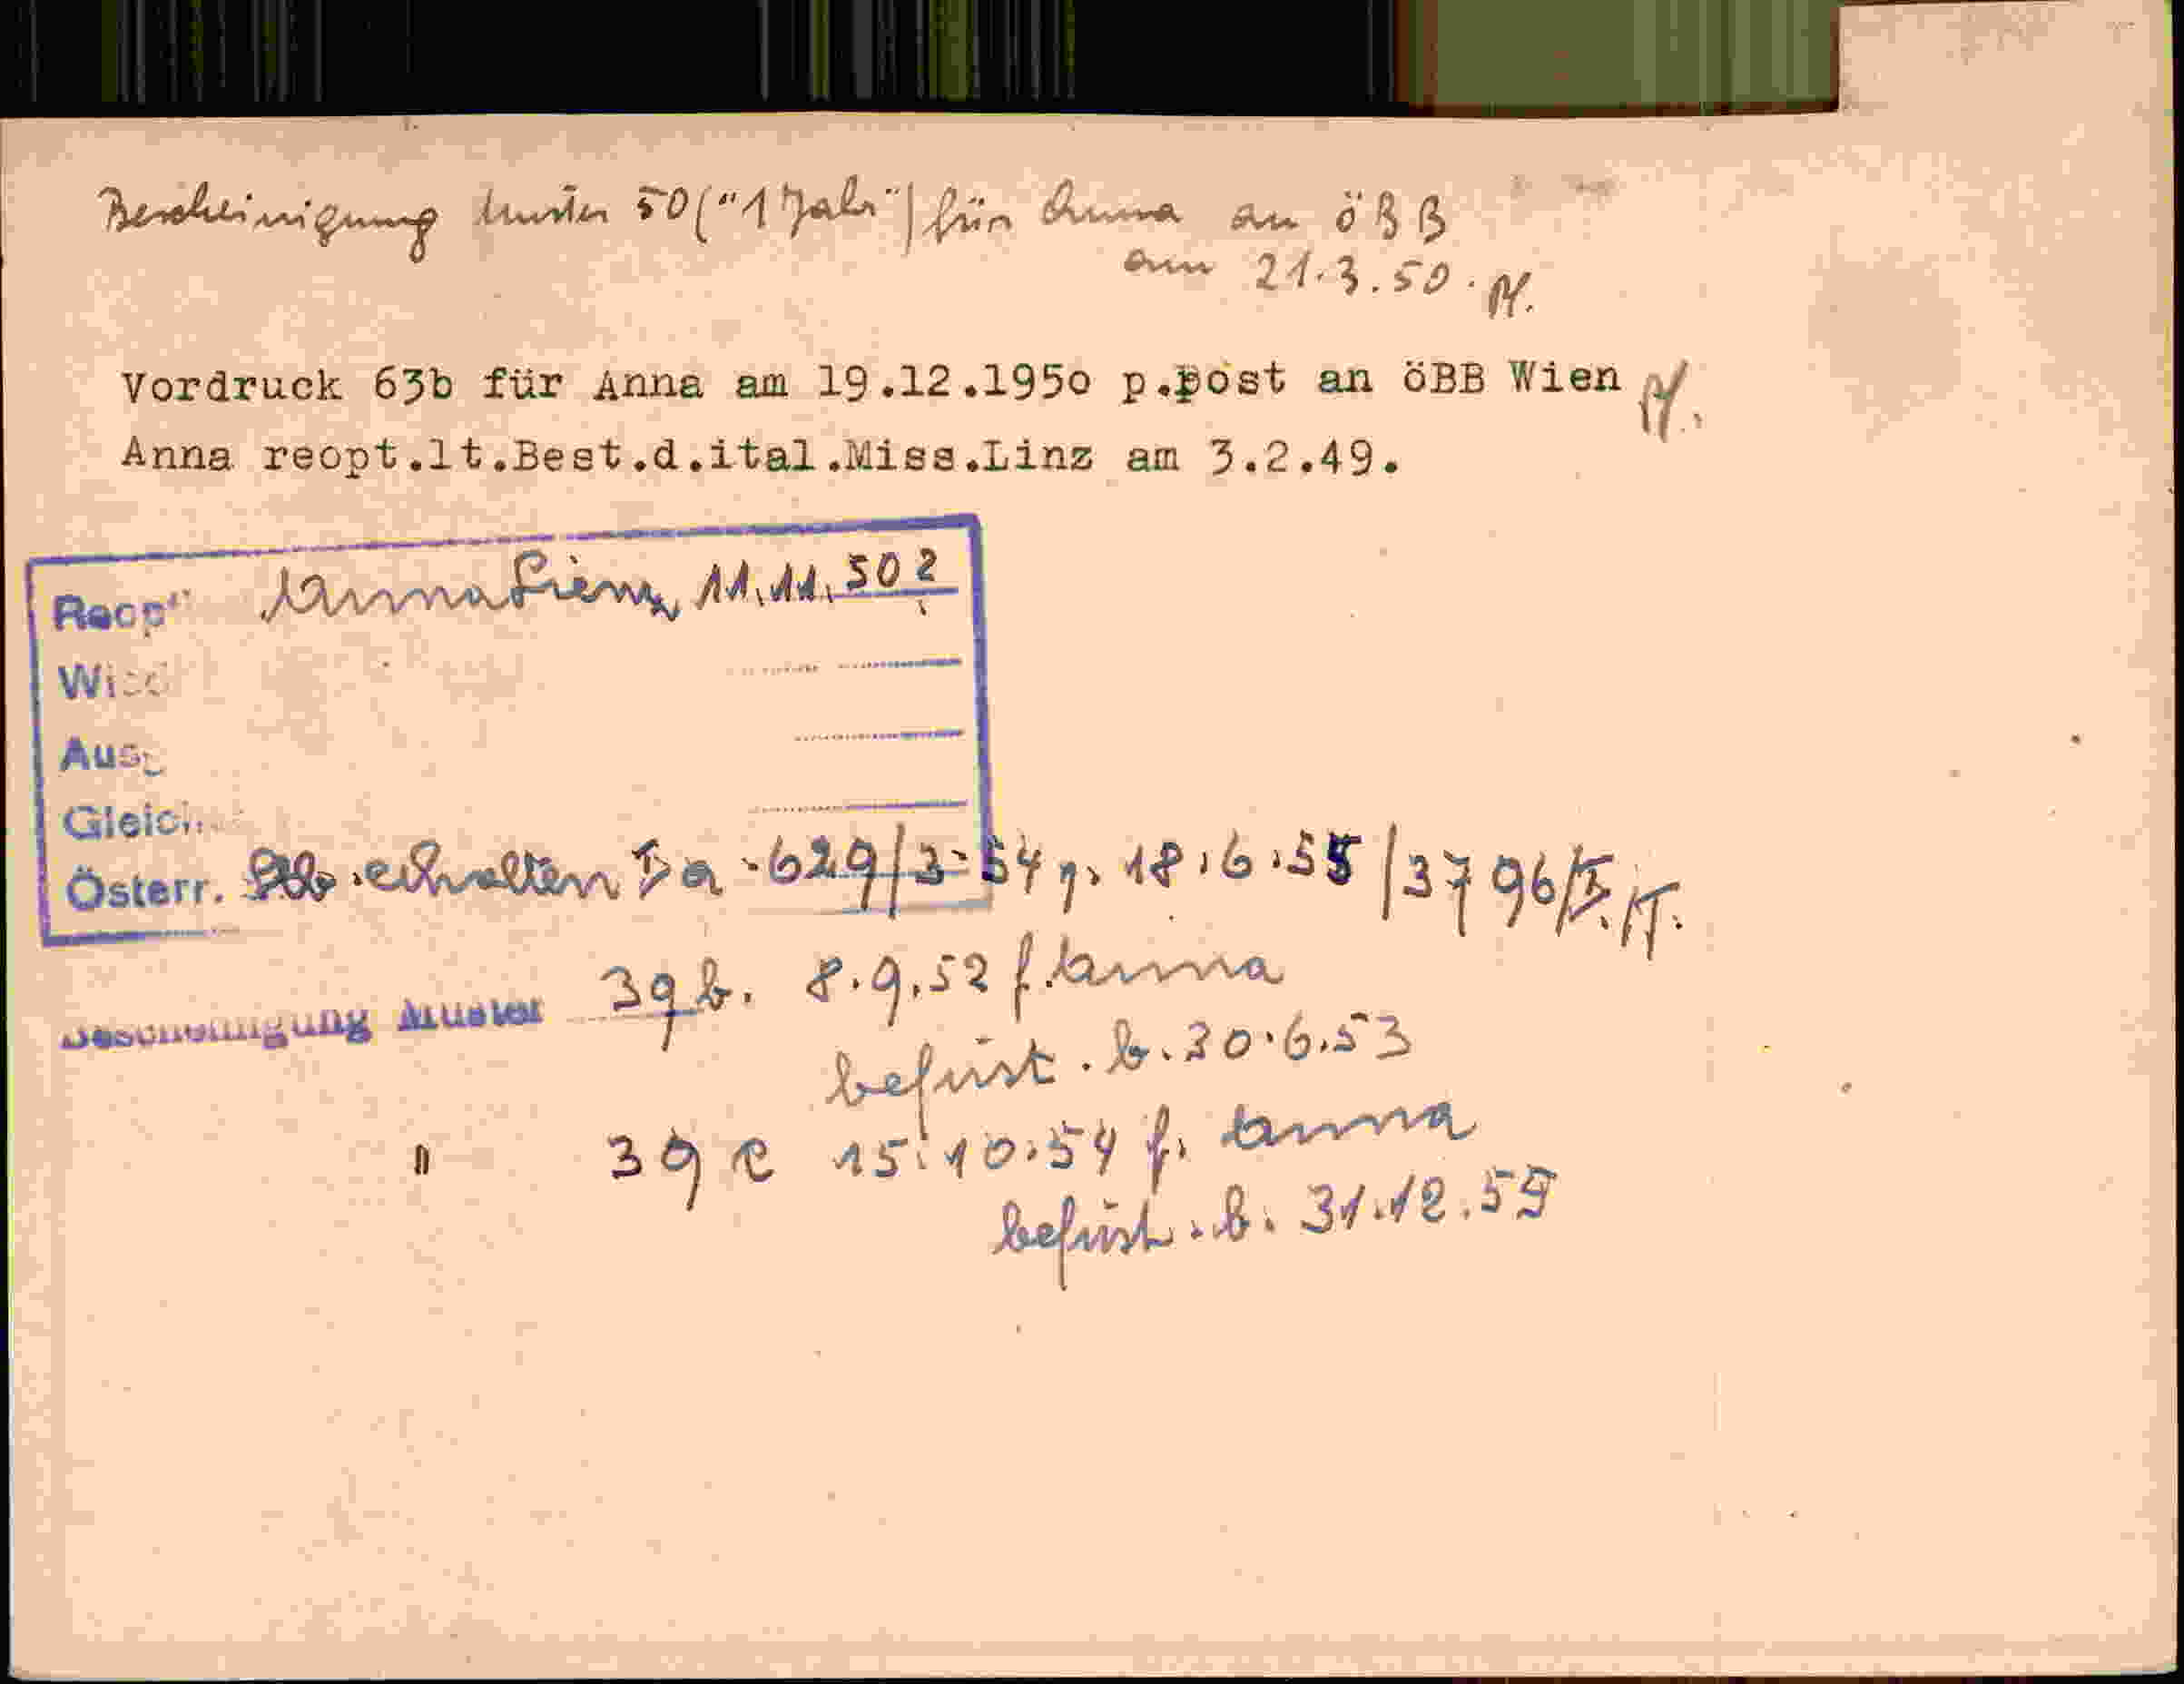 Bescheinigung Muster 50 ("1 Jahr") für Anna an öBB
am 21.3.50.
Vordruck 63b für Anna am 19.12.1950 p.post an öBB Wien
Anna reopt.lt.Best.d.ital.Miss.Linz am 3.2.49.
Reopt Anna Lienz 11.11.50?
Wied
Ausg
Gleich
Österr. Stb. erhalten Ia-629/3-54 v. 18.6.55/3796/I.
Bescheinigung Muster 39b. 8.9.52 f. Anna
befrist. b. 30.6.53
" 39c 15.10.54 f. Anna
befrist. b. 31.12.55